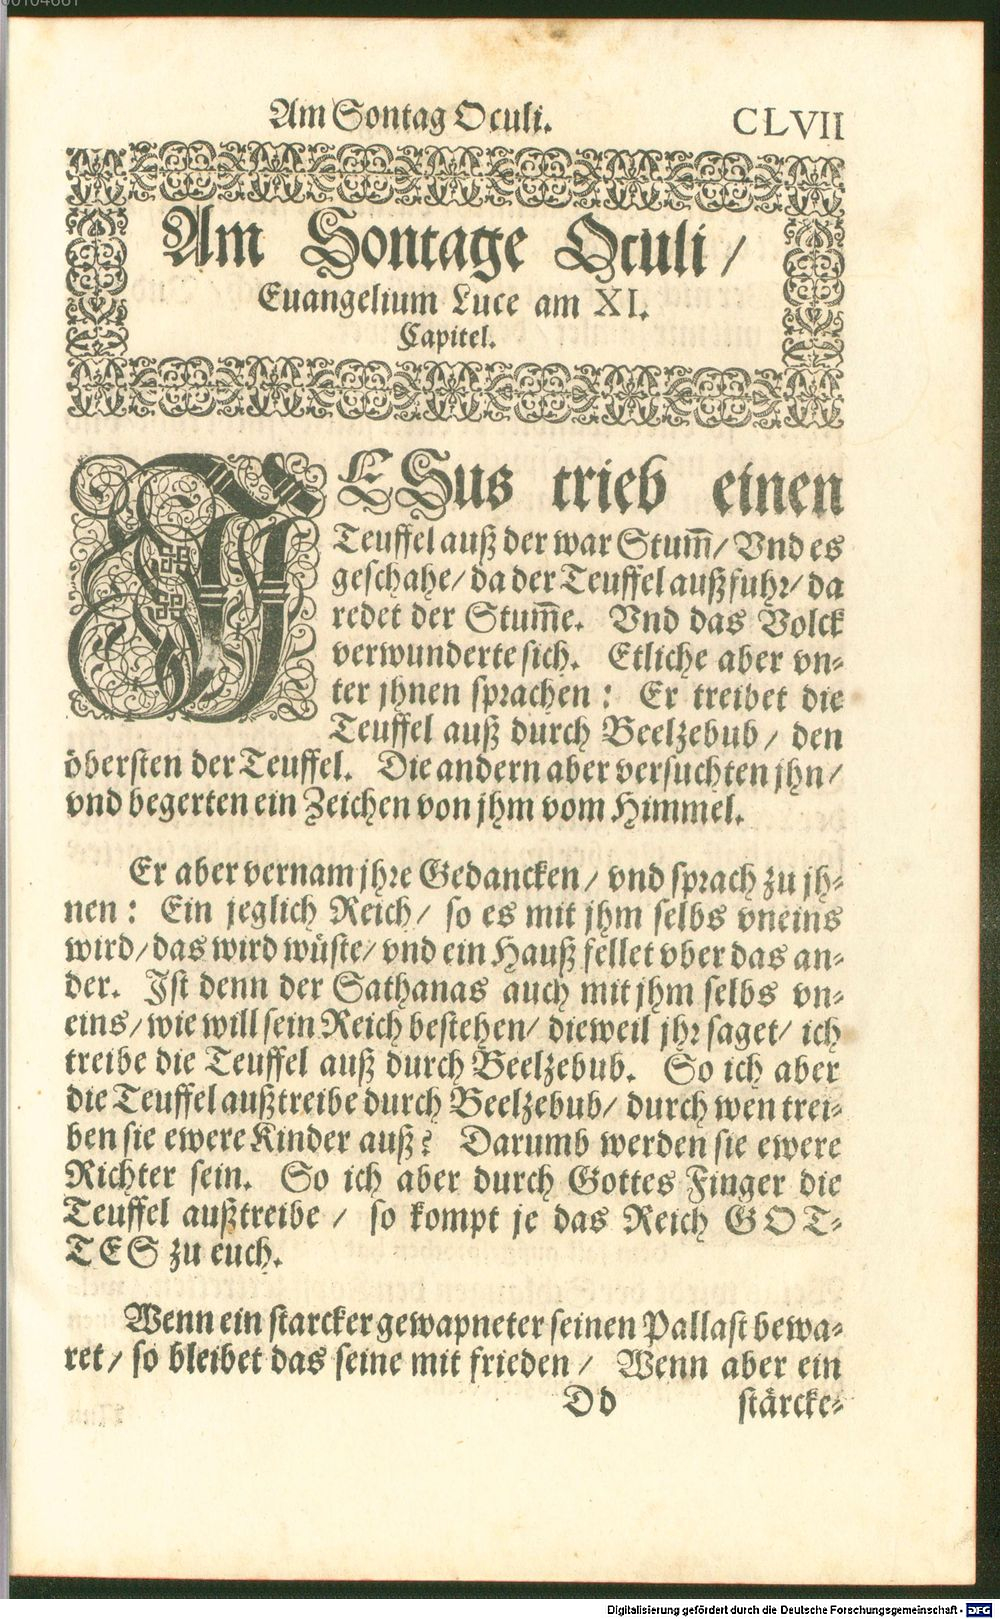 Am Sontag Oculi. CLVII
Am Sontage Oculi /
Euangelium Luce am XI.
Capitel.
JESus trieb einen
Teuffel auß der war Stum̅/ Vnd es
geschahe/ da der Teuffel außfuhr/ da
redet der Stum̅e. Vnd das Volck
verwunderte sich. Etliche aber vn-
ter jhnen sprachen: Er treibet die
Teuffel auß durch Beelzebub/ den
öbersten der Teuffel. Die andern aber versuchten jhn/
vnd begerten ein Zeichen von jhm vom Himmel.
Er aber vernam jhre Gedancken/ vnd sprach zu jh-
nen: Ein jeglich Reich/ so es mit jhm selbs vneins
wird/ das wird wüste/ vnd ein Hauß fellet vber das an-
der. Ist denn der Sathanas auch mit jhm selbs vn-
eins/ wie will sein Reich bestehen/ dieweil jhr saget/ ich
treibe die Teuffel auß durch Beelzebub. So ich aber
die Teuffel außtreibe durch Beelzebub/ durch wen trei-
ben sie ewere Kinder auß? Darumb werden sie ewere
Richter sein. So ich aber durch Gottes Finger die
Teuffel außtreibe / so kompt je das Reich GOT-
TES zu euch.
Wenn ein starcker gewapneter seinen Pallast bewa-
ret/ so bleibet das seine mit frieden / Wenn aber ein
Dd stärcke-
Digitalisierung gefördert durch die Deutsche Forschungsgemeinschaft - DFG